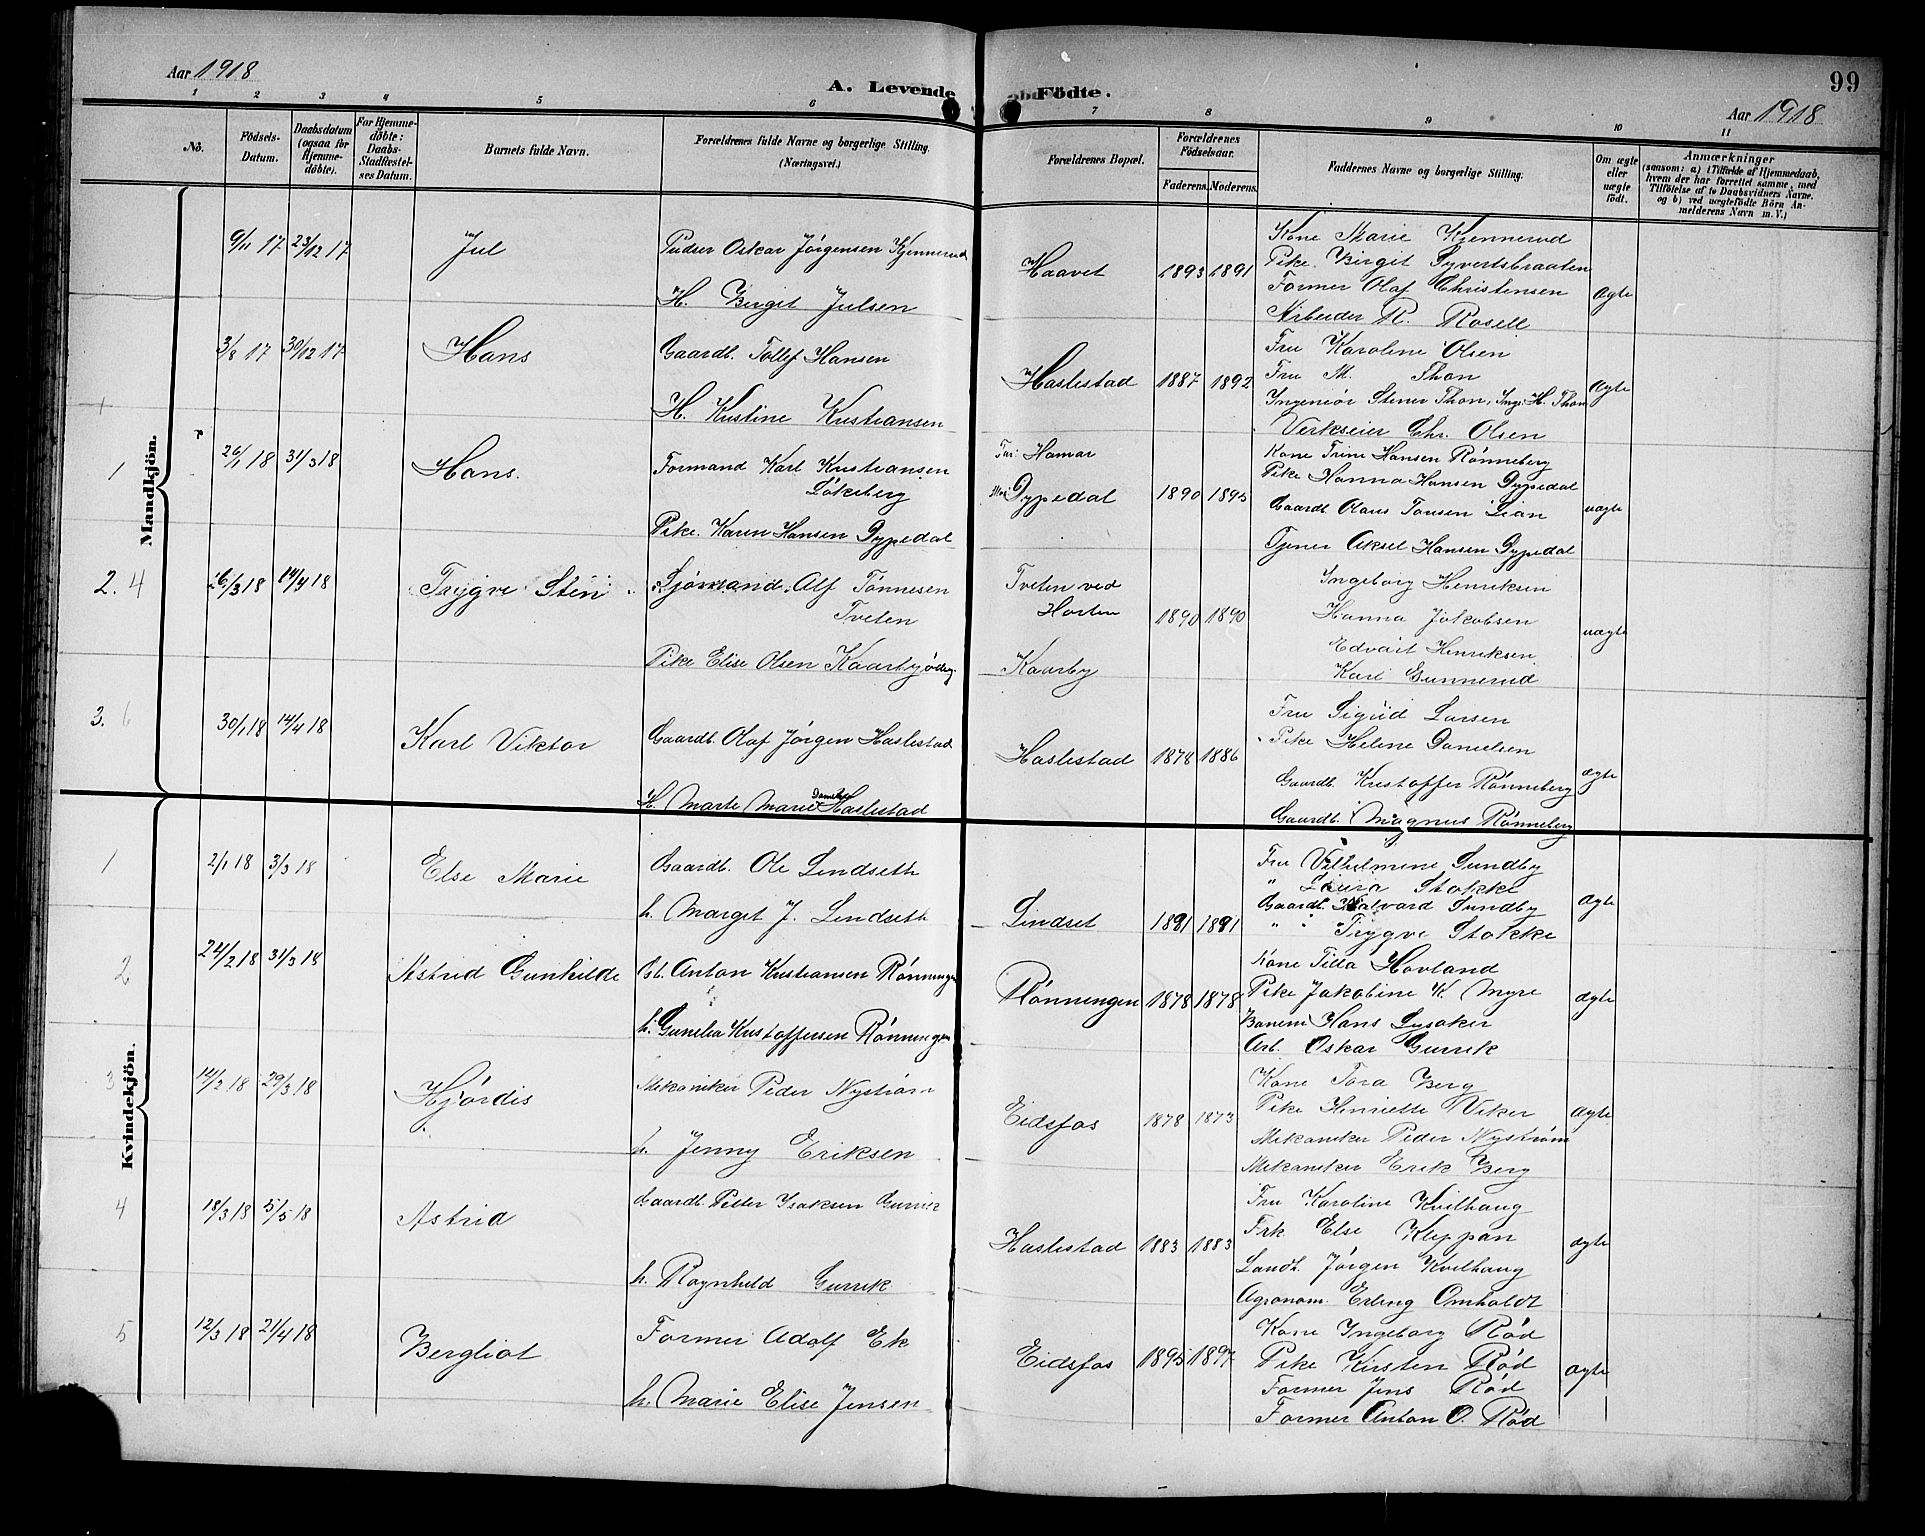 Aar 1918
A. Levende Födte.
99
Aar 1918
1 2 3 4 5 6 7 8 9 10 11
Nö.
Födsels-Datum.
Daabsdatum (ogsaa for Hjemmedöbte).
For Hjemmedöbte: Daabs-Stadfæstelses Datum.
Barnets fulde Navn.
Forældrenes fulde Navne og borgerlige Stilling. (Næringsvei.)
Forældrenes Bopæl.
Forældrenes Födselsaar.
Faderens. Moderens.
Faddernes Navne og borgerlige Stilling.
Om ægte eller uægte födt.
Anmærkninger
(saasom: a) i Tilfælde af Hjemmedaab, hvem der har forrettet samme, med Tilföielse af to Daabsvidners Navne. og b) ved uægtefödte Börn Anmelderens Navn m.V.)
Mandkjön.
9/11 17 23/12 17 Jul
Pudser Oskar Jørgensen Kjennerud
H. Birgit Julsen
Haavet 1893 1891
Kone Marie Kjennerud
Pike Birgit Syvertsbraaten
Former Olaf Christensen
Arbeider R. Rosell
ægte
3/8 17 30/12 17 Hans
Gaardb. Tollef Hansen
H. Kristine Kristiansen
Haslestad 1887 1892
Fru Karoline Olsen
Fru M. Thon
Ingeniør Stener Thon, Ing. H. Thon
Verkseier Chr. Olsen
ægte
1 26/1 18 31/3 18 Hans.
Formand Karl Kristiansen
Løkeberg
Pike. Karen Hansen Dypedal
Far: Hamar
Mor: Dypedal 1890 1895
Kone Trine Hansen Rønneberg
Pike Hanna Hansen Dypedal
Gaardb. Olaus Tonsen Lian
Tjener Aksel Hansen Dypedal
uægte
2. 4 26/3 18 14/4 18 Trygve Sten
Sjømand Alf Tønnesen
Tveten
Pike Elise Olsen Kaarbyødeg
Tveten ved
Horten 1890 1890
Kaarby
Ingeborg Henriksen
Hanna Jakobsen
Edvart Henriksen
Kari Gunnerud
uægte
3. 6 30/1 18 14/4 18 Karl Viktor
Gaardb. Olaf Jørgen Haslestad
H. Marte Marie Haslestad
Haslestad 1878 1886
Fru Sigrid Larsen
Pike Helene Danielsen
Gaardb. Kristoffer Rønneberg
Gaardb. Magnus Rønneberg
ægte
Kvindekjön.
1 2/1 18 3/3 18 Else Marie
Gaardb. Ole Lindseth
h. Margit J. Lindseth
Lindset 1881 1891
Fru Vilhelmine Sundby
" Laura Stokke
Gaardb. Halvard Sundby
" " Trygve Stokke
ægte
2 24/2 18 31/3 18 Astrid Gunhilde
Gb. Anton Kristiansen Rønningen
h. Gunelia Kristoffersen Rønningen
Rønningen 1878 1878
Kone Tilla Hovland
Pike Jakobine K. Myre
Banem Hans Lysaker
Arb. Oskar Gurrik
ægte
3 14/2 18 29/3 18 Hjørdis
Mekaniker Peder Nystrøm
h. Jenny Eriksen
Eidsfos 1878 1873
Kone Tora Berg
Pike Henriette Viker
Mekaniker Peder Nystrøm
Mekaniker Erik Berg
ægte
4 18/3 18 5/5 18 Astrid
Gaardb. Petter Isaksen Gurrik
h. Ragnhild Gurrik
Haslestad 1883 1883
Fru Karoline Kvilhaug
Frk. Else Kleppan
Landh. Jørgen Kvilhaug
Agronom. Erling Omholdt
ægte
5 12/3 18 21/4 18 Bergliot
Former Adolf Ek
h. Marie Elise Jensen
Eidsfos 1895 1897
Kone Ingeborg Rød
Pike Kirsten Rød
Former Jens Rød
Former Anton O. Rød
ægte